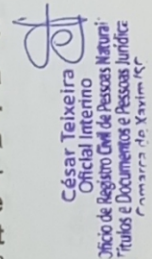 César Teixeira
Oficial Interino
Ofício de Registro Civil de Pessoas Naturai
Títulos e Documentos e Pessoas Jurídica
Comarca de Xaxim/SC